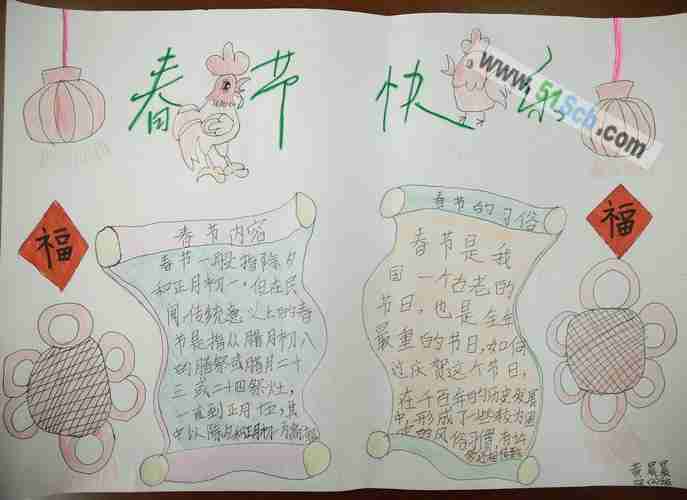 春节 快乐
www.51Sch.com
福
福
春节内容
春节一般指除夕
和正月初一,但在民
间,传统意义上的春
节是指从腊月初八
的腊祭或腊月二十
三或二十四祭灶,
一直到正月十五,其
中以除夕和正月初一
春节的习俗
春节是我
国一个古老的
节日,也是全年
最重的节日,如何
过庆贺这个节日,
在千百年的历史发展
中,形成了一些较为固
定的风俗习惯,有许
多还相传
黄